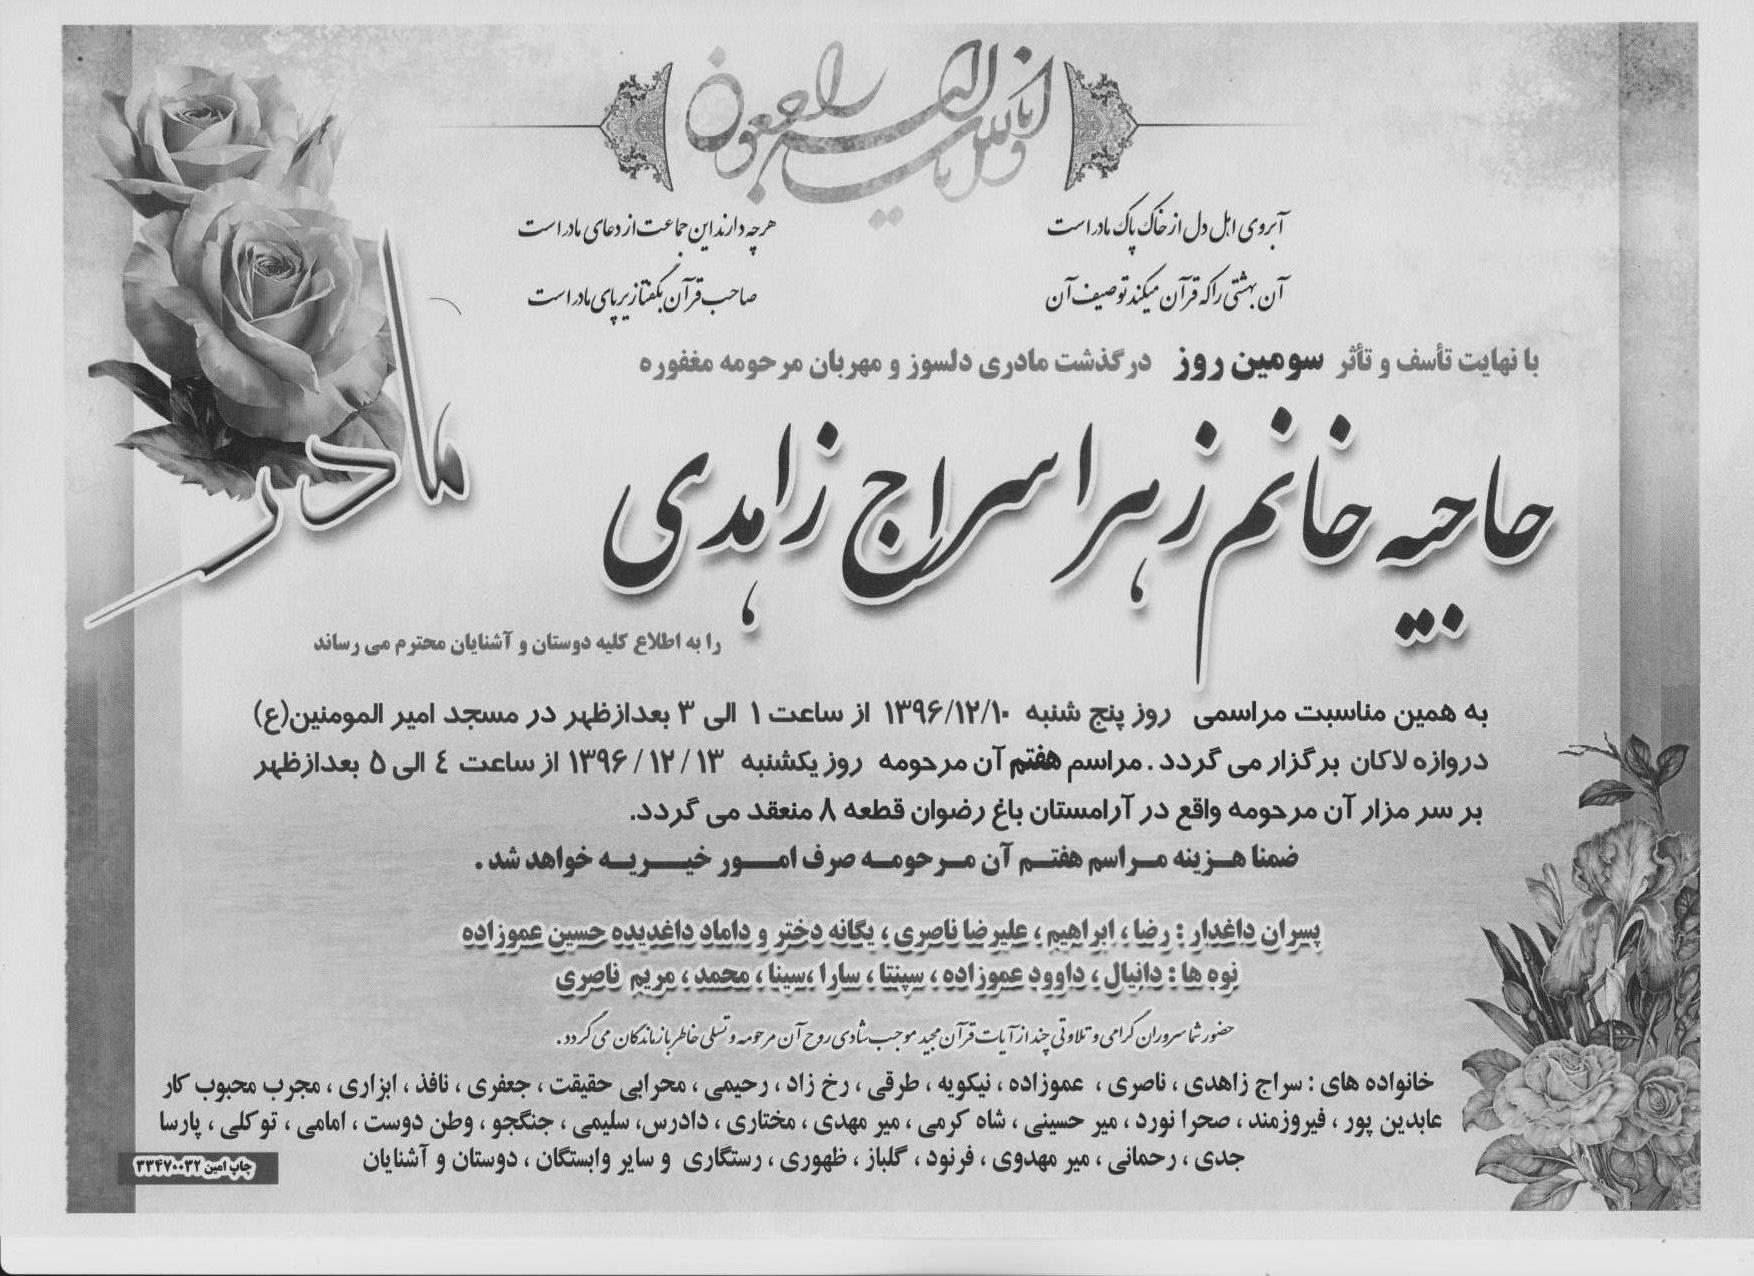 انا لله و انا الیه راجعون
آبروی اهل دل از خاک پاک مادر است هرچه دارند این جماعت از دعای مادر است
آن بهشتی را که قرآن میکند توصیف آن صاحب قرآن بگفتا زیر پای مادر است
مادر
با نهایت تأسف و تأثر سومین روز درگذشت مادری دلسوز و مهربان مرحومه مغفوره
حاجیه خانم زهرا سراج زاهدی
را به اطلاع کلیه دوستان و آشنایان محترم می رساند
به همین مناسبت مراسمی روز پنج شنبه ۱۳۹۶/۱۲/۱۰ از ساعت ۱ الی ۳ بعدازظهر در مسجد امیر المومنین(ع)
دروازه لاکان برگزار می گردد. مراسم هفتم آن مرحومه روز یکشنبه ۱۳ / ۱۲ / ۱۳۹۶ از ساعت ٤ الی ۵ بعدازظهر
بر سر مزار آن مرحومه واقع در آرامستان باغ رضوان قطعه ۸ منعقد می گردد.
ضمنا هزینه مراسم هفتم آن مرحومه صرف امور خیریه خواهد شد .
پسران داغدار : رضا ، ابراهیم ، علیرضا ناصری ، یگانه دختر و داماد داغدیده حسین عموزاده
نوه ها : دانیال ، داوود عموزاده ، سپنتا ، سارا ،سینا ، محمد ، مریم ناصری
حضور شما سروران گرامی و تلاوتی چند از آیات قرآن مجید موجب شادی روح آن مرحومه و تسلی خاطر بازماندگان می گردد .
خانواده های : سراج زاهدی ، ناصری ، عموزاده ، نیکویه ، طرقی ، رخ زاد ، رحیمی ، محرابی حقیقت ، جعفری ، نافذ ، ابزاری ، مجرب محبوب کار
عابدین پور ، فیروزمند ، صحرا نورد ، میر حسینی ، شاه کرمی ، میر مهدی ، مختاری ، دادرس، سلیمی ، جنگجو ، وطن دوست ، امامی ، توکلی ، پارسا
جدی ، رحمانی ، میر مهدوی ، فرنود ، گلباز ، ظهوری ، رستگاری و سایر وابستگان ، دوستان و آشنایان
چاپ امین ۳۳۴۷۰۰۳۲